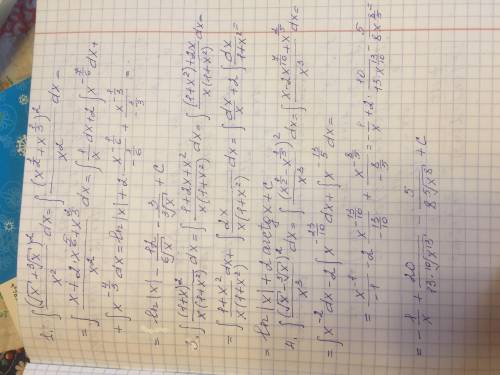 1. ∫ (√x + ∛x)²/x² dx = ∫ (x^(1/2) + x^(1/3))²/x² dx =
= ∫ (x + 2·x^(5/6) + x^(2/3))/x² dx = ∫ 1/x dx + 2∫ x^(-7/6) dx +
+ ∫ x^(-4/3) dx = ln|x| + 2· x^(-1/6)/(-1/6) + x^(-1/3)/(-1/3) =
= ln|x| - 12/⁶√x - 3/∛x + C
3. ∫ (1+x)²/(x(1+x²)) dx = ∫ (1+2x+x²)/(x(1+x²)) dx = ∫ ((1+x²)+2x)/(x(1+x²)) dx =
= ∫ (1+x²)/(x(1+x²)) dx + ∫ 2x/(x(1+x²)) dx = ∫ dx/x + 2∫ dx/(1+x²) =
= ln|x| + 2arctg x + C
4. ∫ (√x - ⁵√x)²/x³ dx = ∫ (x^(1/2) - x^(1/5))²/x³ dx = ∫ (x - 2x^(7/10) + x^(2/5))/x³ dx =
= ∫ x^(-2) dx - 2∫ x^(-23/10) dx + ∫ x^(-13/5) dx =
= x^(-1)/(-1) - 2 x^(-13/10)/(-13/10) + x^(-8/5)/(-8/5) = -1/x + 2· 10/(13x^(13/10)) - 5/(8x^(8/5)) =
= -1/x + 20/(13·¹⁰√x¹³) - 5/(8 ⁵√x⁸) + C